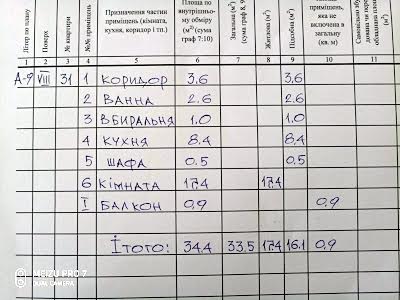 Літер по плану
Поверх
№ квартири
№№ приміщень
Призначення частин приміщень (кімната, кухня, коридор і тп.)
Площа по внутрішньому обміру (м²) (сума граф 7:10)
Загальна (м²) (сума граф 8, 9
Житлова (м²)
Підсобна (м²)
приміщення, яка не включена в загальну (кв. м)
1 2 3 4 5 6 7 8 9 10 11
А-9 VIII 31 1 Коридор 3.6 3.6
2 Ванна 2.6 2.6
3 Вбиральня 1.0 1.0
4 Кухня 8.4 8.4
5 Шафа 0.5 0.5
6 Кімната 17.4 17.4
I Балкон 0.9 0.9
Ітого: 34.4 33.5 17.4 16.1 0.9
MEIZU PRO 7
DUAL CAMERA